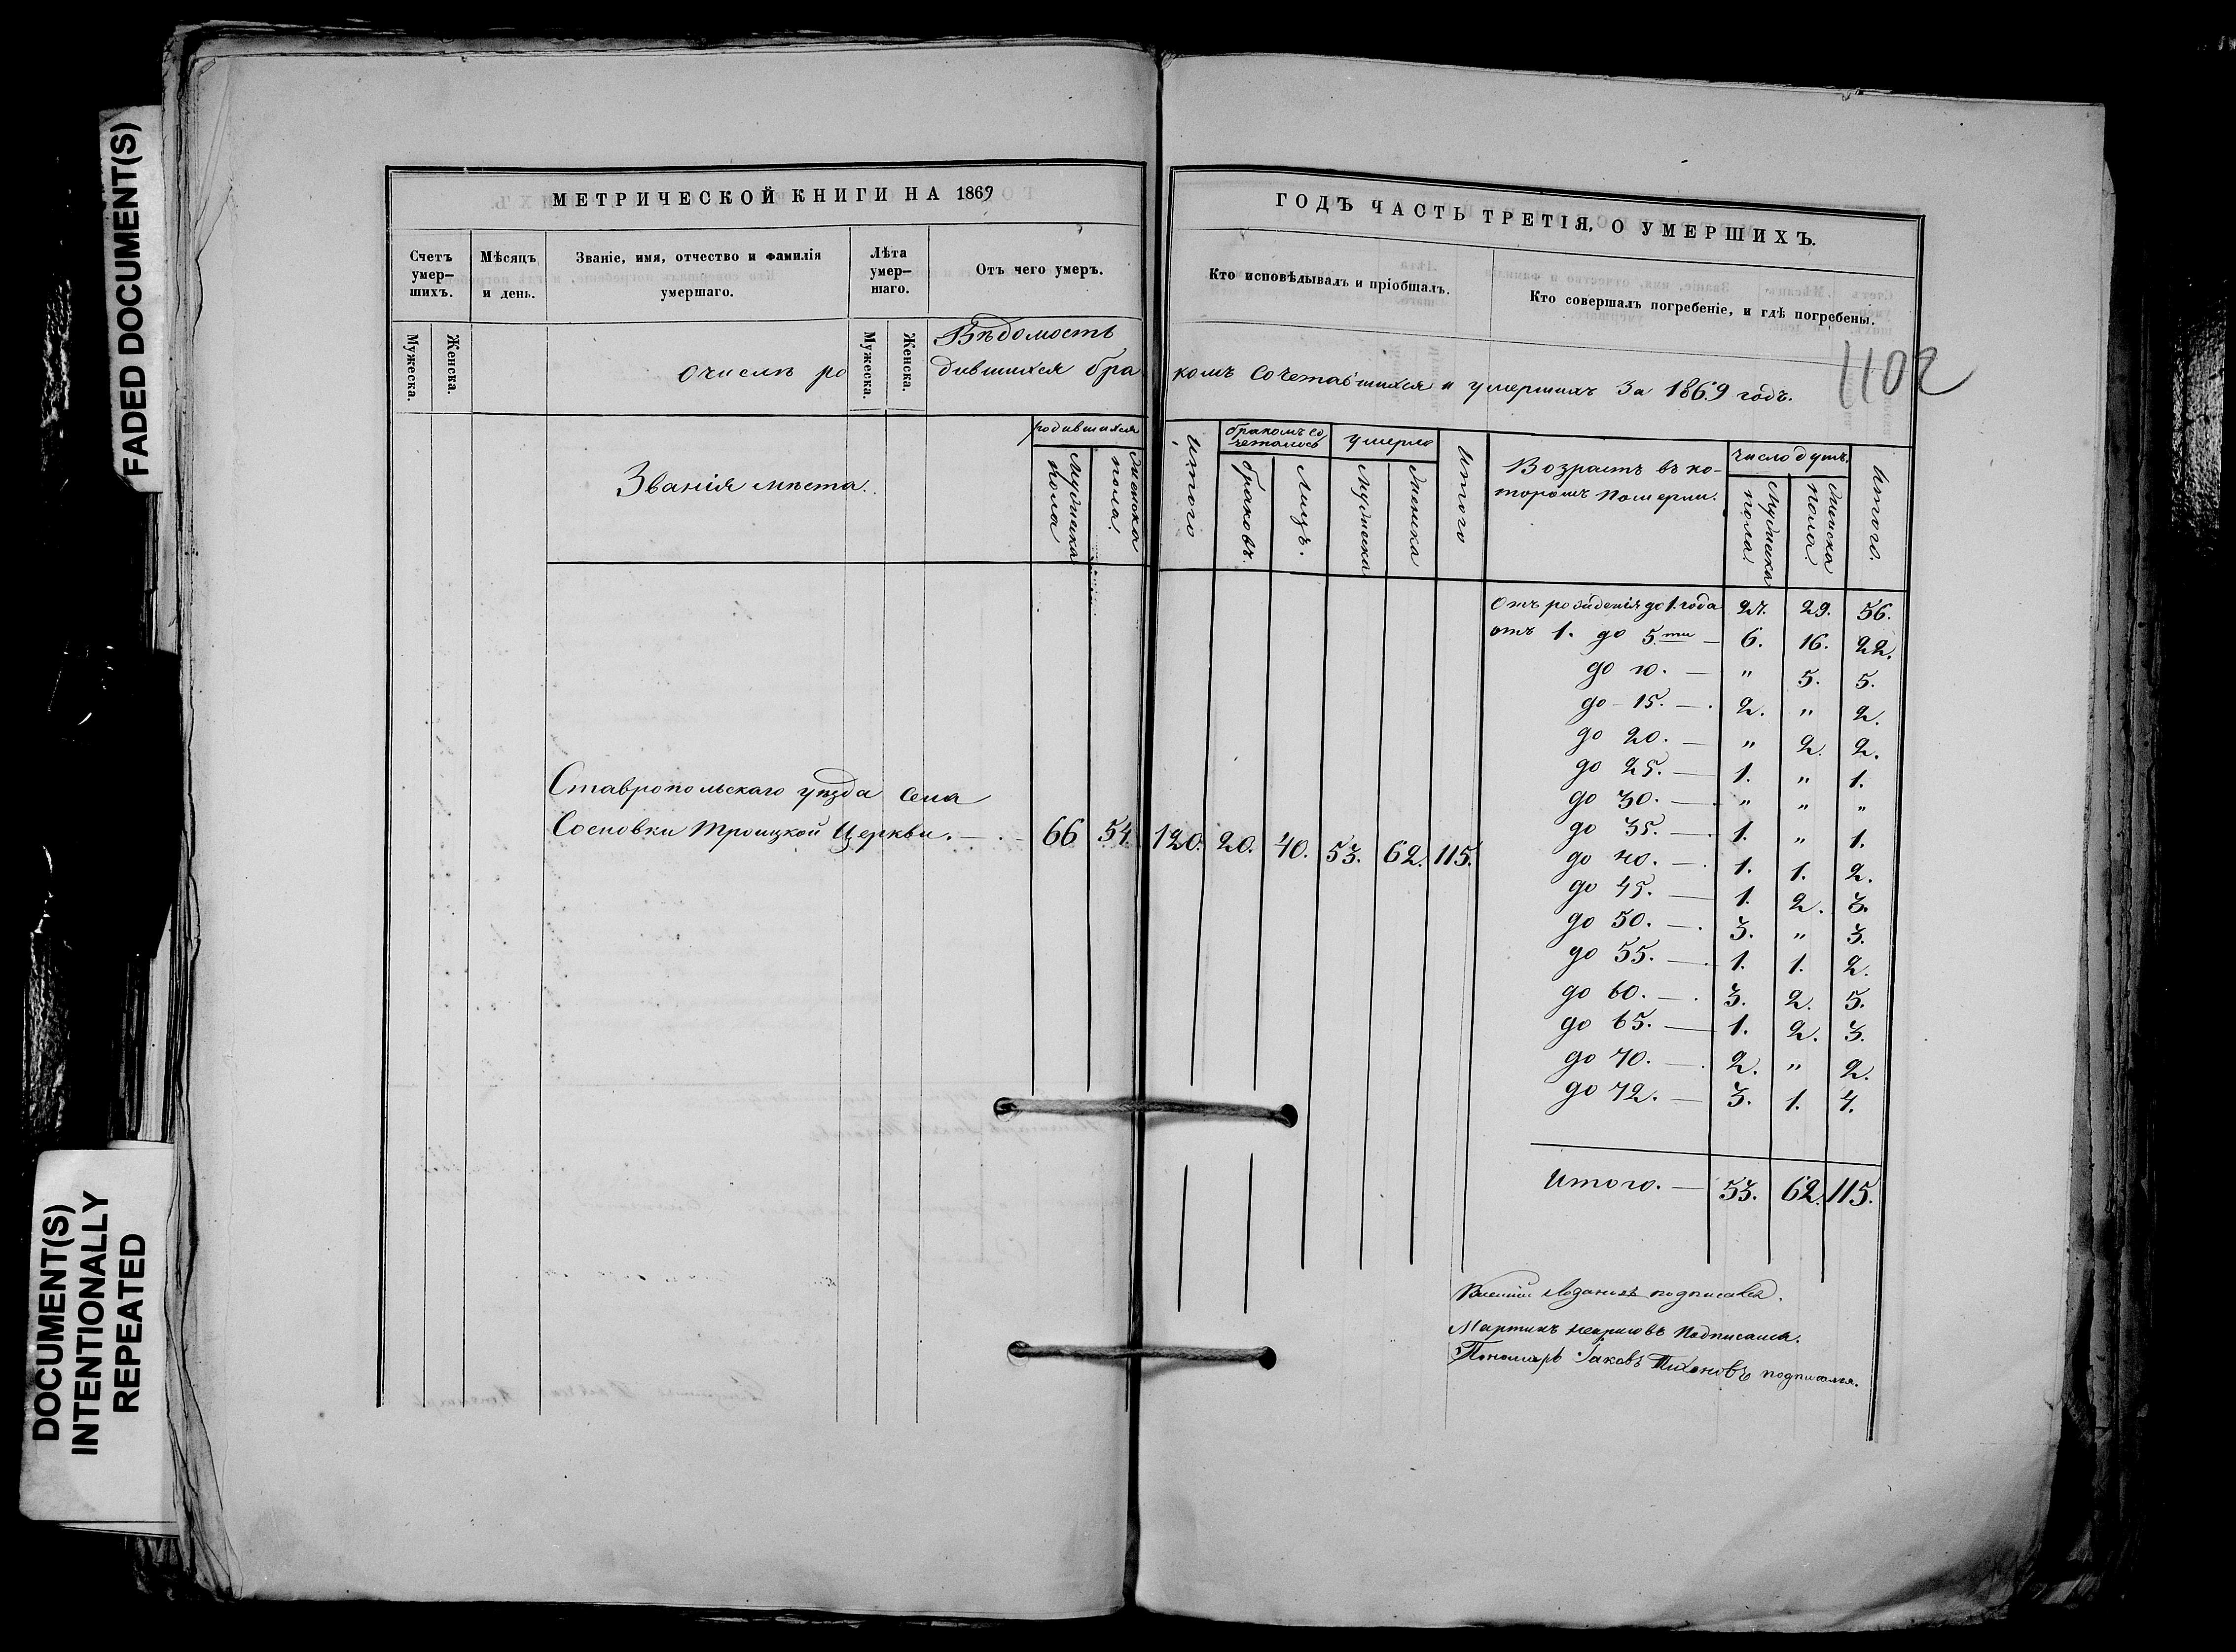 FADED DOCUMENT(S)
DOCUMENT(S)
INTENTIONALLY
REPEATED
МЕТРИЧЕСКОЙ КНИГИ НА 1869
ГОДЪ ЧАСТЬ ТРЕТІЯ, О УМЕРШИХЪ.
Счетъ умер-шихъ.
Мѣсяцъ и день.
Званіе, имя, отчество и фамилія умершаго.
Лѣта умер-шаго.
Отъ чего умеръ.
Кто исповѣдывалъ и пріобщалъ.
Кто совершалъ погребеніе, и гдѣ погребены.
Мужеска.
Женска.
Мужеска.
Женска.
1102
Вѣдомость
о числѣ родившихся бракомъ сочетавшихся и умершихъ за 1869 годъ.
Званія мѣста.
родившихся
Мужеска пола
Женска пола.
Итого
бракомъ сочеталось
браковъ.
Лицъ.
умерло
Мужеска
Женска
Итого
Возрастъ въ ко-
торомъ померли.
число душъ.
Мужеска пола.
Женска пола.
Итого.
Ставропольскаго уѣзда села
Сосновки Троицкой Церкви. 66 54. 120. 20. 40. 53. 62. 115.
Отъ рожденія до 1. года 27. 29. 56.
отъ 1. до 5.ти — 6. 16. 22.
до 10. — " 5. 5.
до 15. — 2. " 2.
до 20. — " 2. 2.
до 25. — 1. " 1.
до 30. — " " "
до 35. — 1. " 1.
до 40. — 1. 1. 2.
до 45. — 1. 2. 3.
до 50. — 3. " 3.
до 55. — 1. 1. 2.
до 60. — 3. 2. 5.
до 65. — 1. 2. 3.
до 70. — 2. " 2.
до 72. — 3. 1. 4.
Итого. — 53. 62. 115.
подписался.
Мартинъ подписался.
Пономарь Іаковъ Тихоновъ подписался.